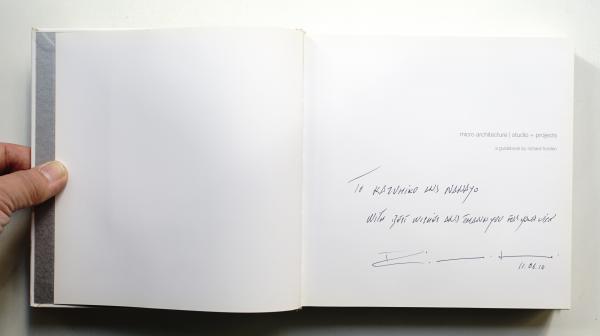 micro architecture | studio + projects
a guidebook by richard horden
To KAZUHIKO AND NAHAYO
WITH BEST WISHES AND THANK YOU FOR YOUR VISIT
11.06.10